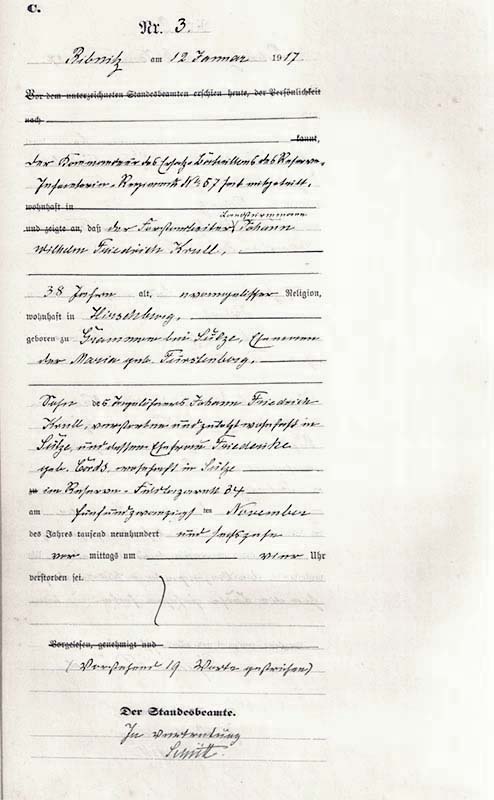 C.
Nr. 3.
Ribnitz am 12 Januar 1917
Vor dem unterzeichneten Standesbeamten erschien heute, der Persönlichkeit
nach
kannt,
Der Kommandeur des Ersatz-Bataillons des Reserve-
Infanterie-Regiments No 67 hat mitgeteilt,
wohnhaft in
Landsturmmann
und zeigte an, daß der Forstarbeiter Johann
Wilhelm Friedrich Krull,
38 Jahre alt, evangelischer Religion,
wohnhaft in Hirschburg,
geboren zu Grammow bei Sülze, Ehemann
der Maria geb. Fürstenberg,
Sohn des Tagelöhners Johann Friedrich
Krull, verstorben und zuletzt wohnhaft in
Sülze, und dessen Ehefrau Friederike
geb. wohnhaft in Sülze
zu im Reserve-Feldlazarett 84
am fünfundzwanzigsten November
des Jahres tausend neunhundert und sechzehn
vor mittags um vier Uhr
verstorben sei.
Vorgelesen, genehmigt und
(Vorstehend 19 Worte gestrichen)
Der Standesbeamte.
In Vertretung